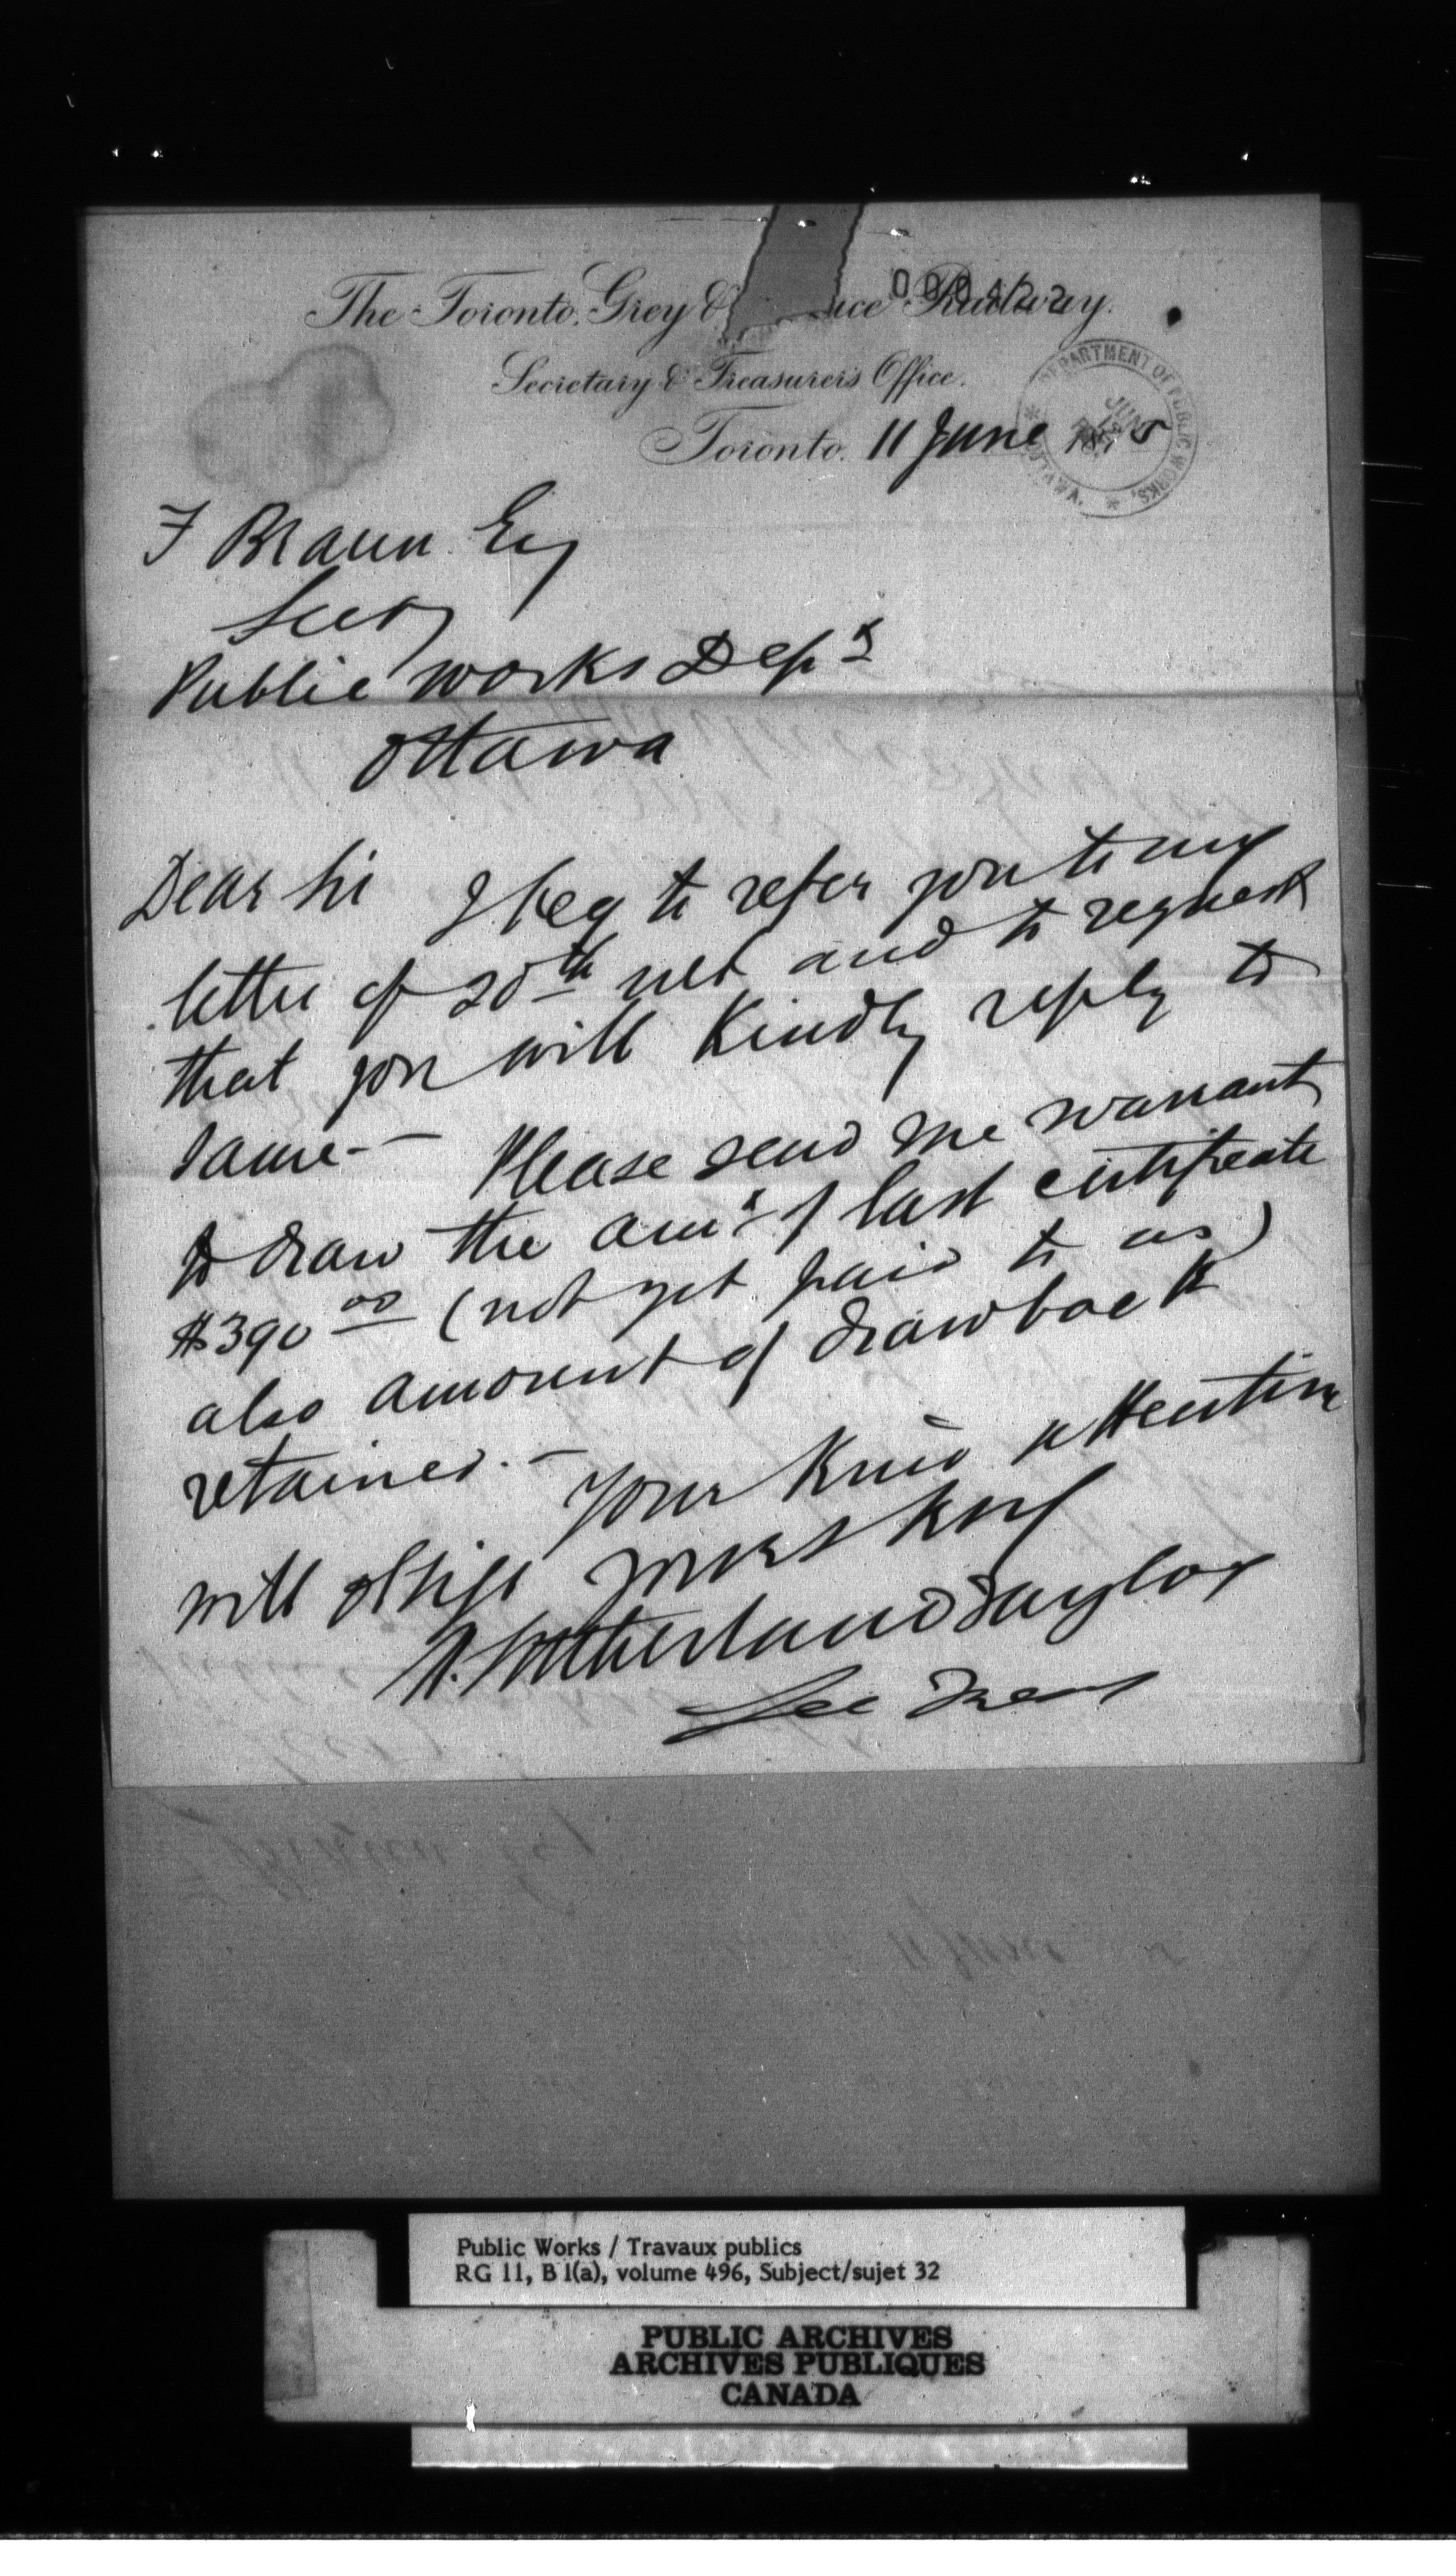 000422
The Toronto, Grey & uce Railway.
Secretary & Treasurer's Office.
DEPARTMENT OF PUBLIC WORKS,
JUN
Toronto. 11 June 1875
F Braun Esq
Secy
Public Works Dept
Ottawa
Dear Sir I beg to refer you to my
letter of 20th ult and to request
that you will Kindly reply to
same- Please send me warrant
to draw the amt of last certificate
$390 00 (not yet paid to us)
also amount of drawback
retained.- Your Kind attention
will oblige yours truly
W. Sutherland Taylor
Sec Treas
Public Works / Travaux publics
RG 11, B 1(a), volume 496, Subject/sujet 32
PUBLIC ARCHIVES
ARCHIVES PUBLIQUES
CANADA